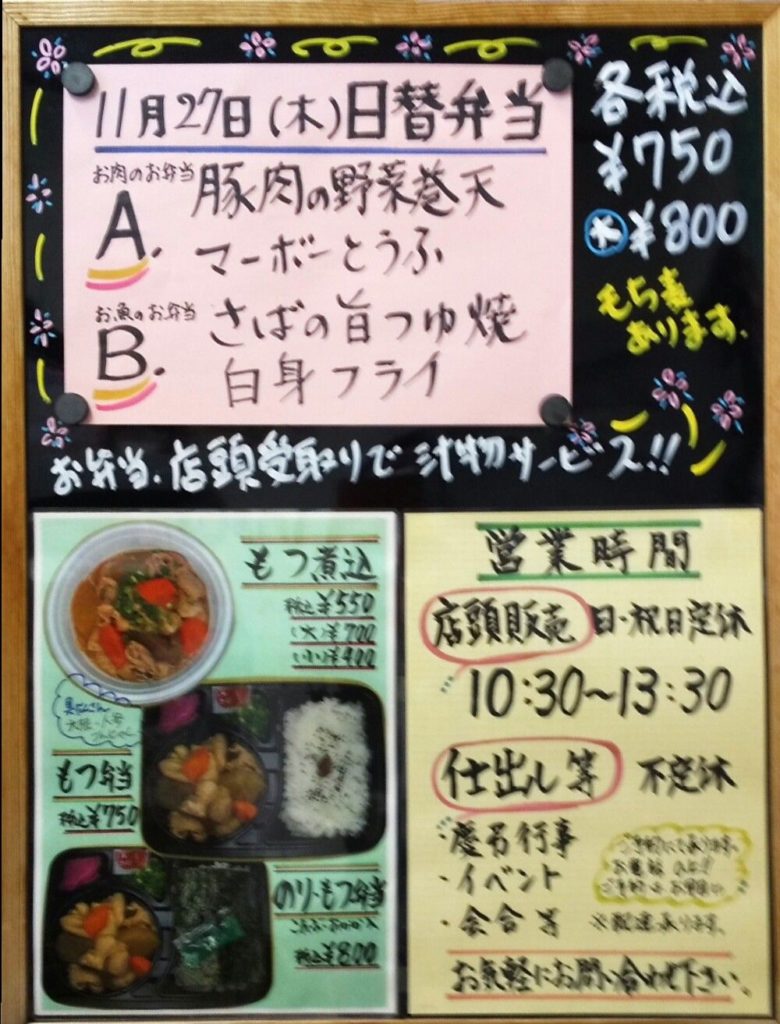 11月27日(木)日替弁当
お肉のお弁当
A. 豚肉の野菜巻天
マーボーとうふ
お魚のお弁当
B. さばの旨つゆ焼
白身フライ
各税込
¥750
大 ¥800
もち麦
あります。
お弁当、店頭受取りで汁物サービス!!
もつ煮込
税込¥550
(大)¥700
(小)¥400
大根・人参
こんにゃく
もつ弁当
税込¥750
のり・もつ弁当
税込¥800
営業時間
店頭販売 日・祝日定休
10:30〜13:30
仕出し等 不定休
・慶弔行事
・イベント
・会合等
ご予約にて承ります。
※配達承ります。
お気軽にお問い合わせ下さい。